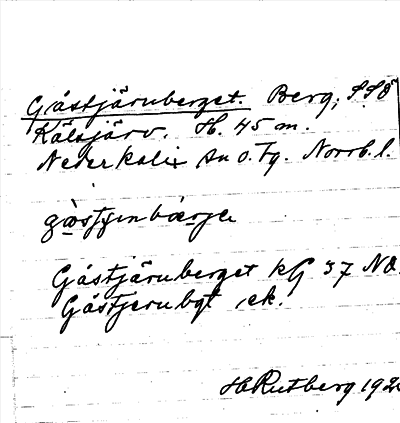 Gåstjärnberget. Berg; SSÖ
Kälsjärv. H. 45 m.
Nederkalix sn o. tg. Norrb. l.
gåstjenbærje
Gåstjärnberget kG 37 NO.
Gåstjernbgt ek.
HRutberg 192